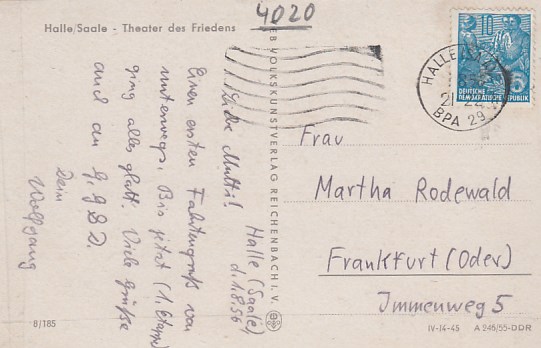 4020
Halle/Saale - Theater des Friedens
Halle (Saale),
d. 1.8.56
Liebe Mutti!
Einen ersten Fahrtengruß von
unterwegs. Bis jetzt (1. Etappe)
ging alles glatt. Viele Grüße
auch an
Dein
Wolfgang
B/185
VOLKSKUNSTVERLAG REICHENBACH I. V.
HALLE
BPA 29
10
DEUTSCHE
DEMOKRATISCHE REPUBLIK
Frau
Martha Rodewald
Frankfurt (Oder)
Immenweg 5
IV-14-45 A 946/55-DDR